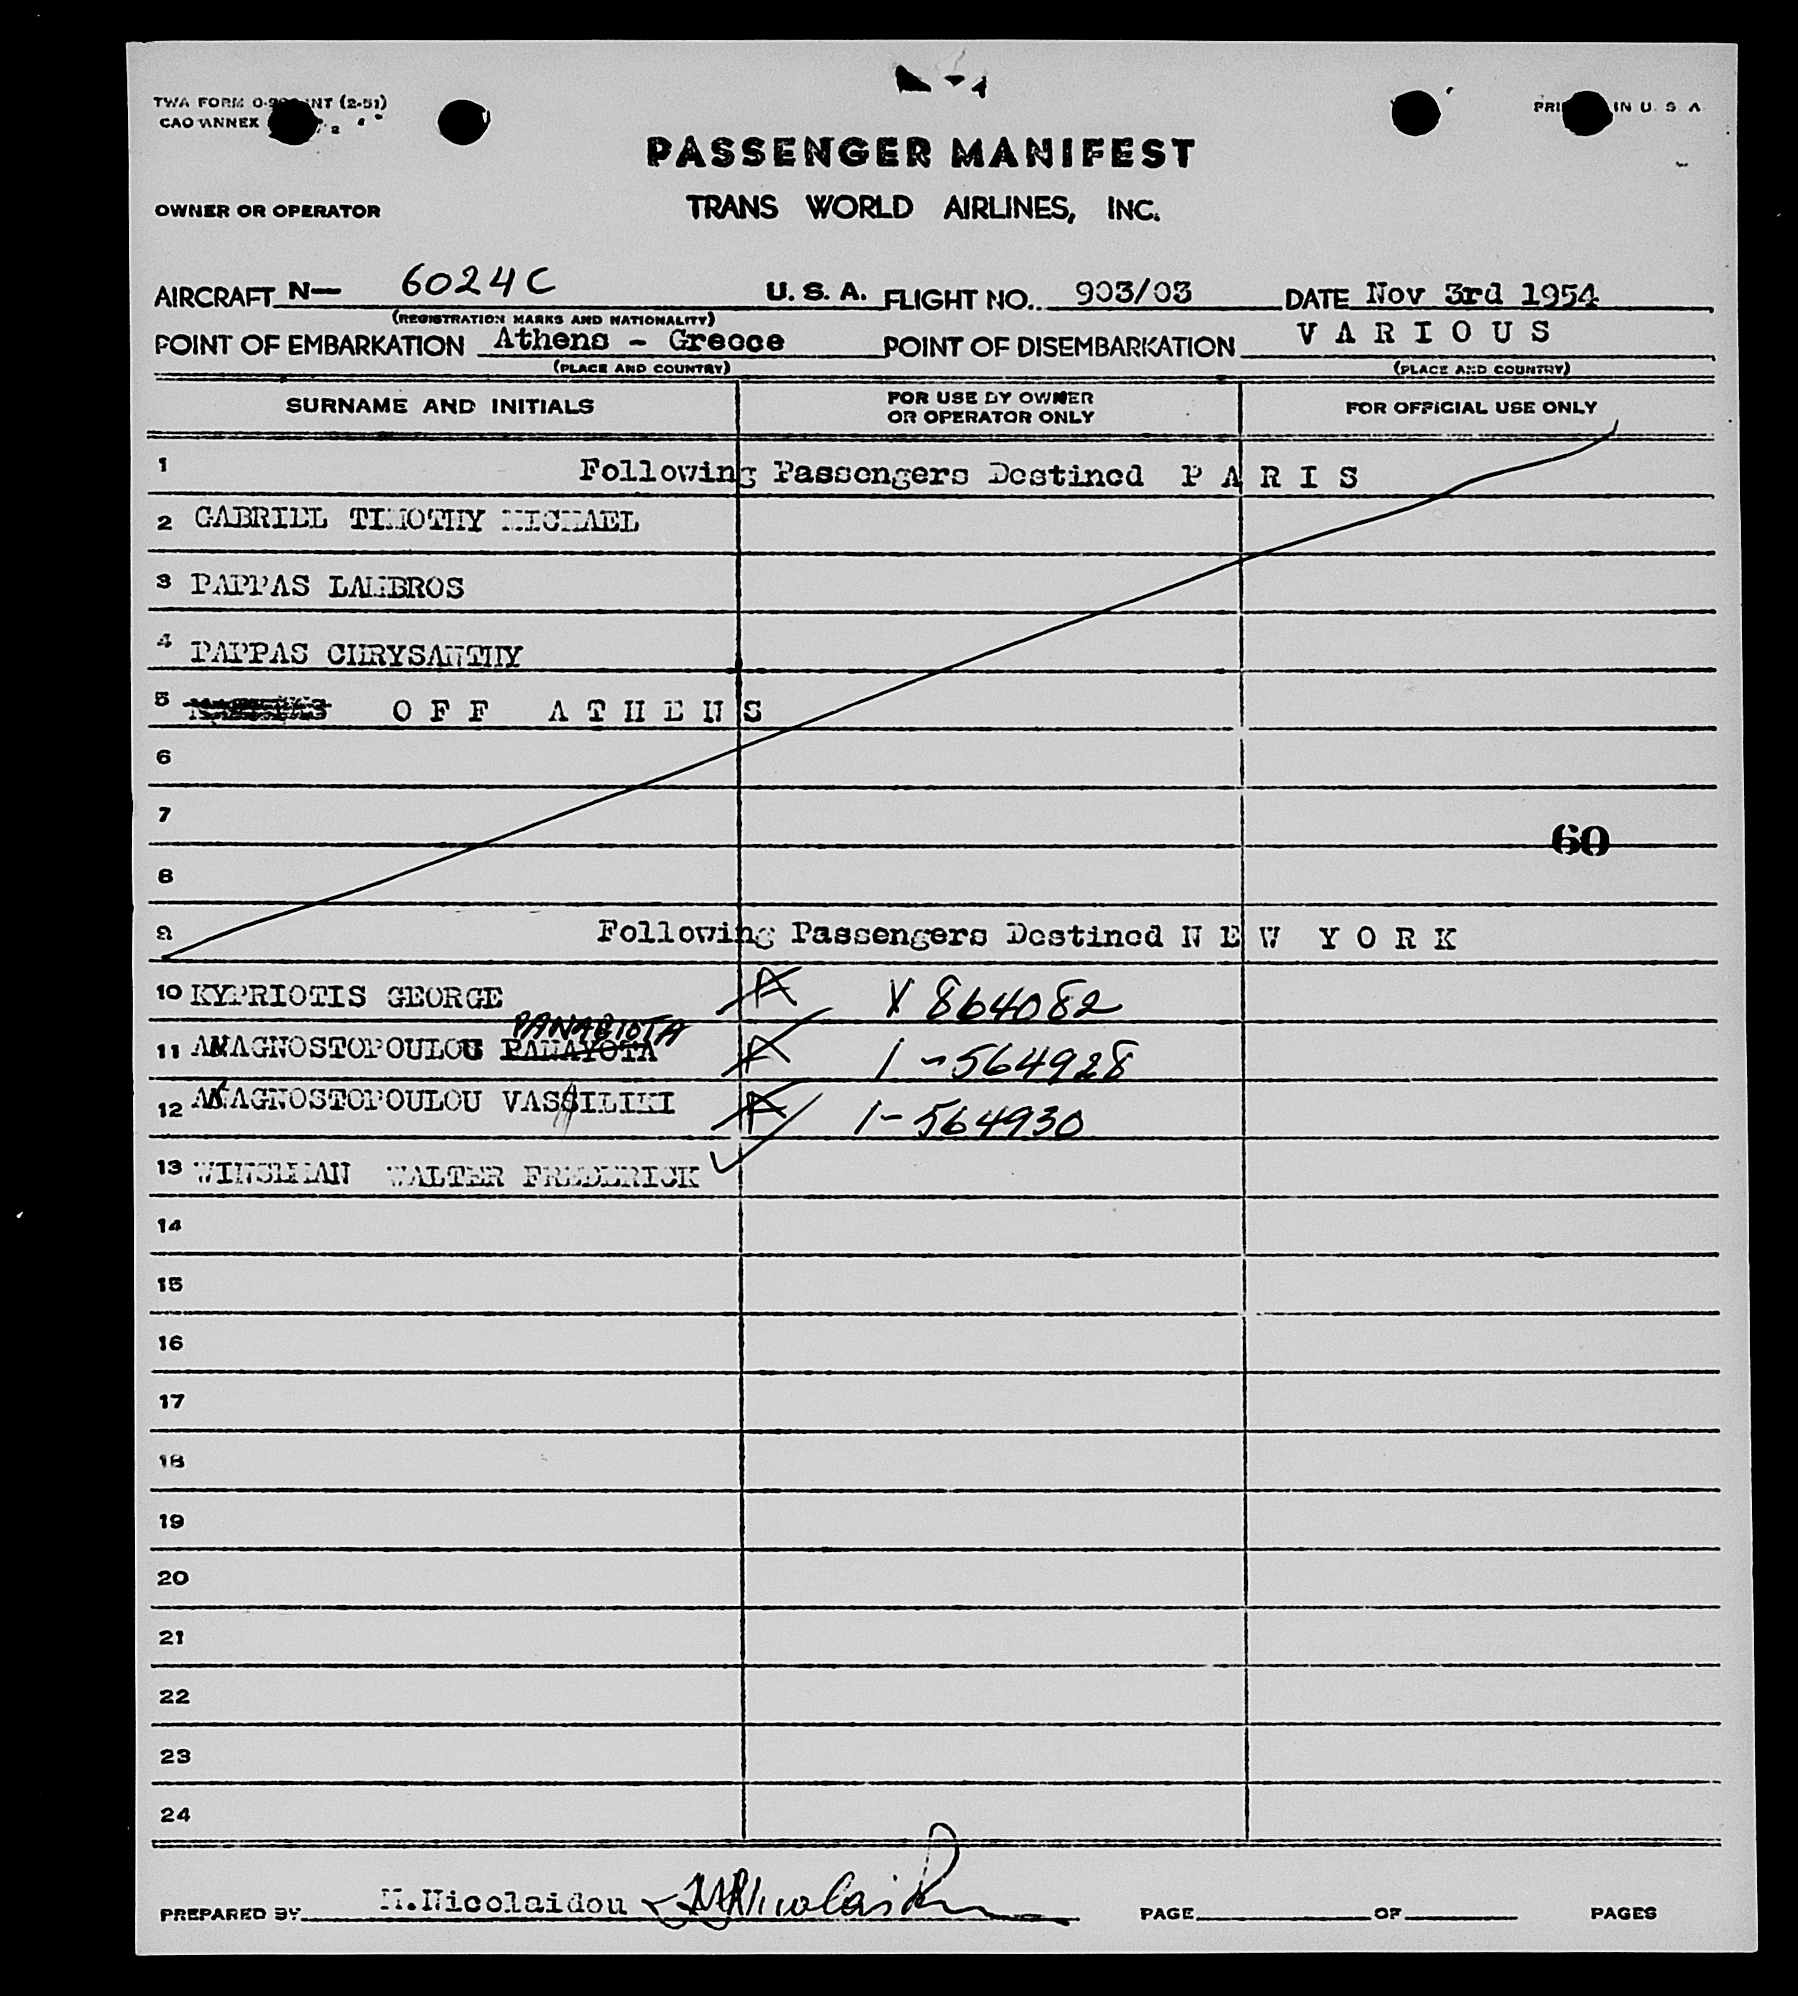 TWA FORM 0- INT (2-51)
CAO ANNEX
PRI IN U. S. A.
PASSENGER MANIFEST
OWNER OR OPERATOR TRANS WORLD AIRLINES, INC.
AIRCRAFT N— 6024C U. S. A. FLIGHT NO. 903/03 DATE Nov 3rd 1954
(REGISTRATION MARKS AND NATIONALITY)
POINT OF EMBARKATION Athens - Greece POINT OF DISEMBARKATION VARIOUS
(PLACE AND COUNTRY) (PLACE AND COUNTRY)
SURNAME AND INITIALS FOR USE BY OWNER OR OPERATOR ONLY FOR OFFICIAL USE ONLY
1 Following Passengers Destined P A R I S
2 GABRIEL TIMOTHY MICHAEL
3 PAPPAS LAMBROS
4 PAPPAS CHRYSANTHY
5 O F F A T H E N S
6
7
60
8
9 Following Passengers Destined N E W Y O R K
10 KYPRIOTIS GEORGE A V 864082
PANAGIOTA
11 ANAGNOSTOPOULOU PANAYOTA A 1-564928
12 ANAGNOSTOPOULOU VASSILIKI A 1-564930
13 WINSHMAN WALTER FREDERICK
14
15
16
17
18
19
20
21
22
23
24
PREPARED BY M.Nicolaidou PAGE OF PAGES